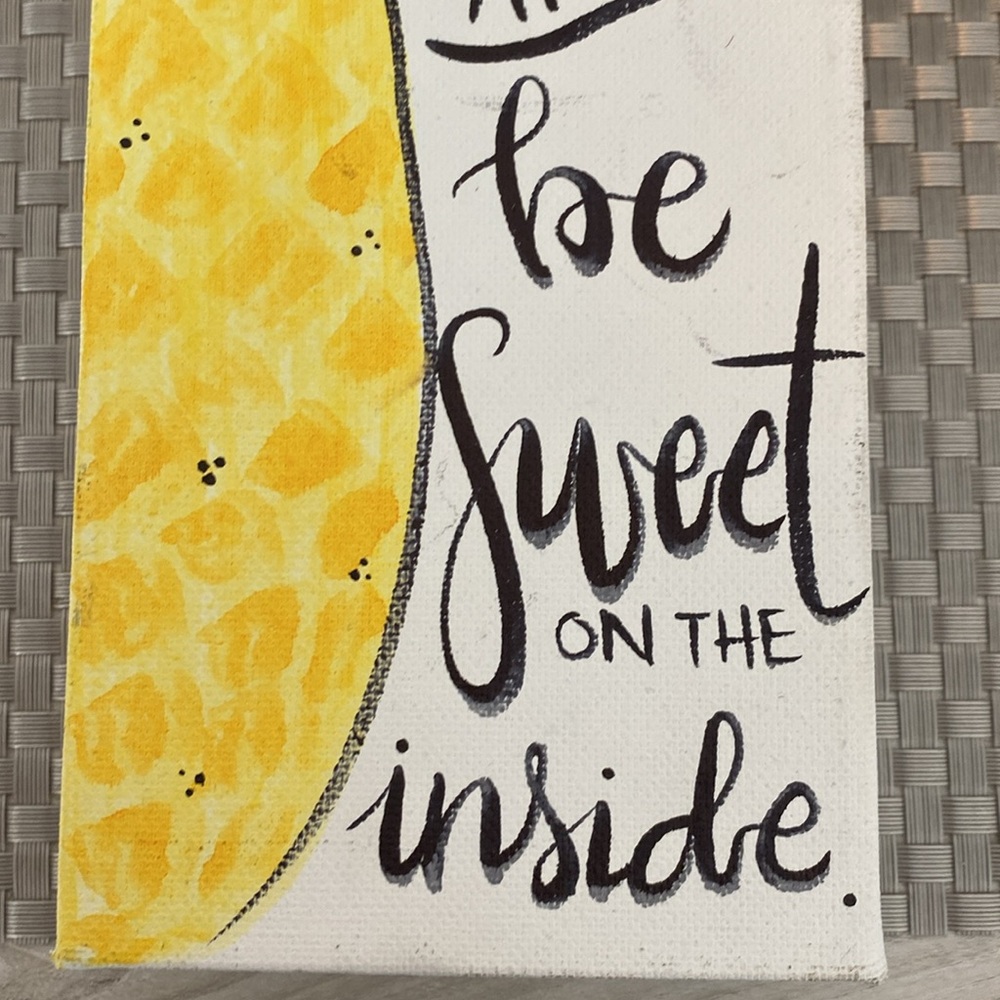 be
Sweet
ON THE
inside.